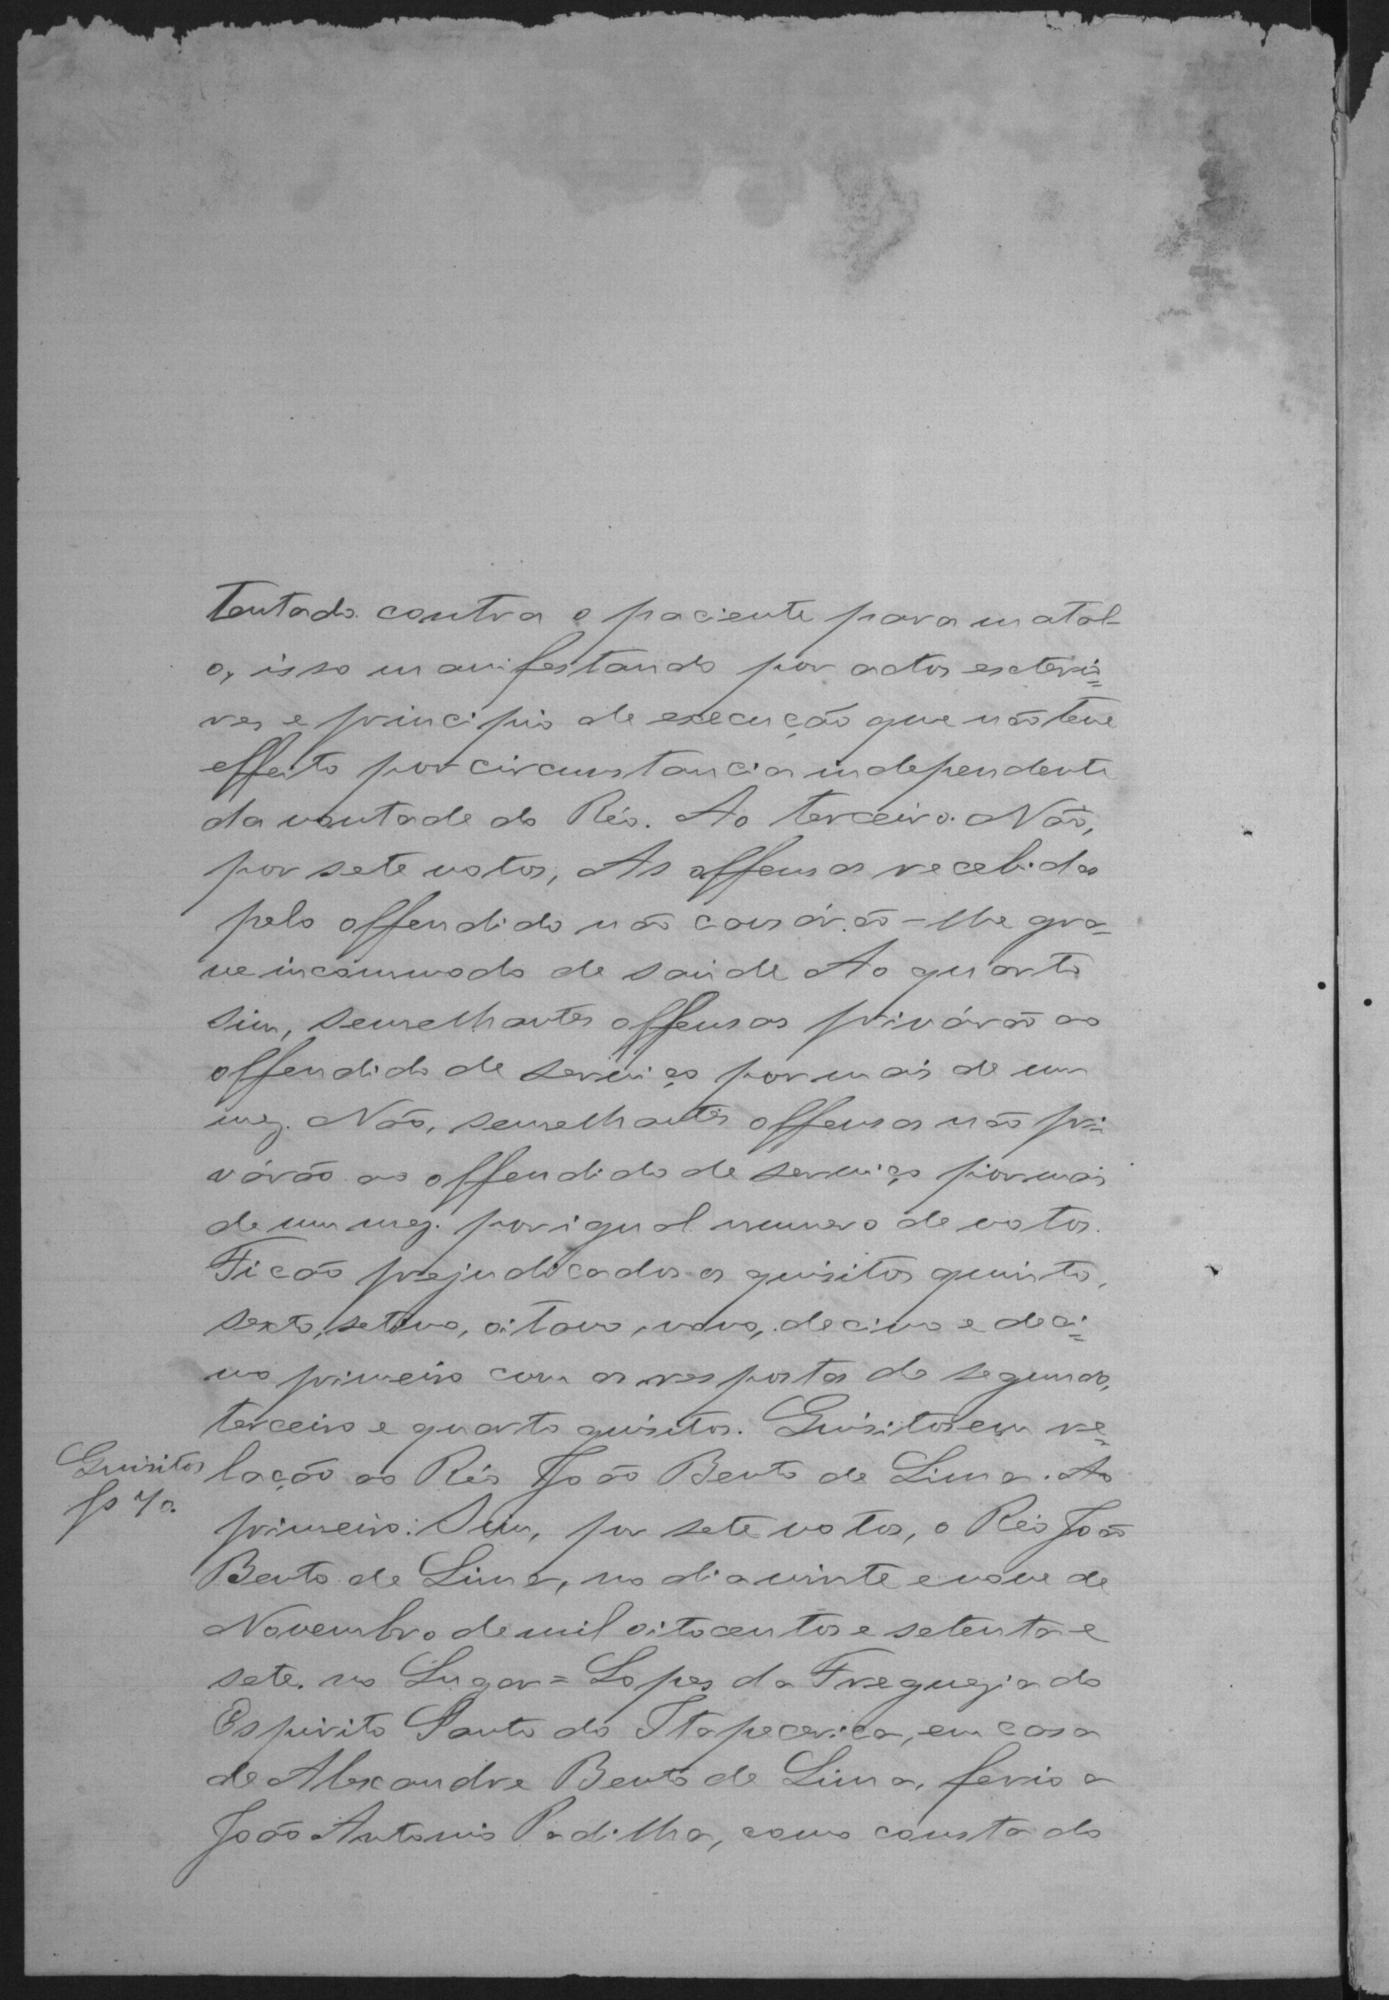 tentado contra o paciente para matal-
o, isso manifestando por actos exterio=
res e principio de execução que não teve
effeito por circunstancia independente
da vontade do Réo. Ao terceiro. Não,
por sete votos, As offensas recebidas
pelo offendido não causárão-lhe gra=
ve incommodo de saúde Ao quarto
sim, semelhantes offensas privárão ao
offendido de serviço por mais de um
mez. Não, semelhantes offensas não pri=
várão ao offendido de serviço por mais
de um mez. por igual numero de votos.
Ficão prejudicados os quisitos quinto,
sexto, setimo, oitavo, nono, decimo e deci=
mo primeiro com as respostas do segundo,
terceiro e quarto quisitos. Quisitos em re=
Quisitos
fs 70.
lação ao Réo João Bento de Lima. Ao
primeiro: Sim, por sete votos, o Réo João
Bento de Lima, no dia vinte e nove de
Novembro de mil oitocentos e setenta e
sete. no Lugar = Lopes da Freguezia do
Espirito Santo do Itapecerica, em casa
de Alexandre Bento de Lima, ferio a
João Antonio Padilha, como consta do